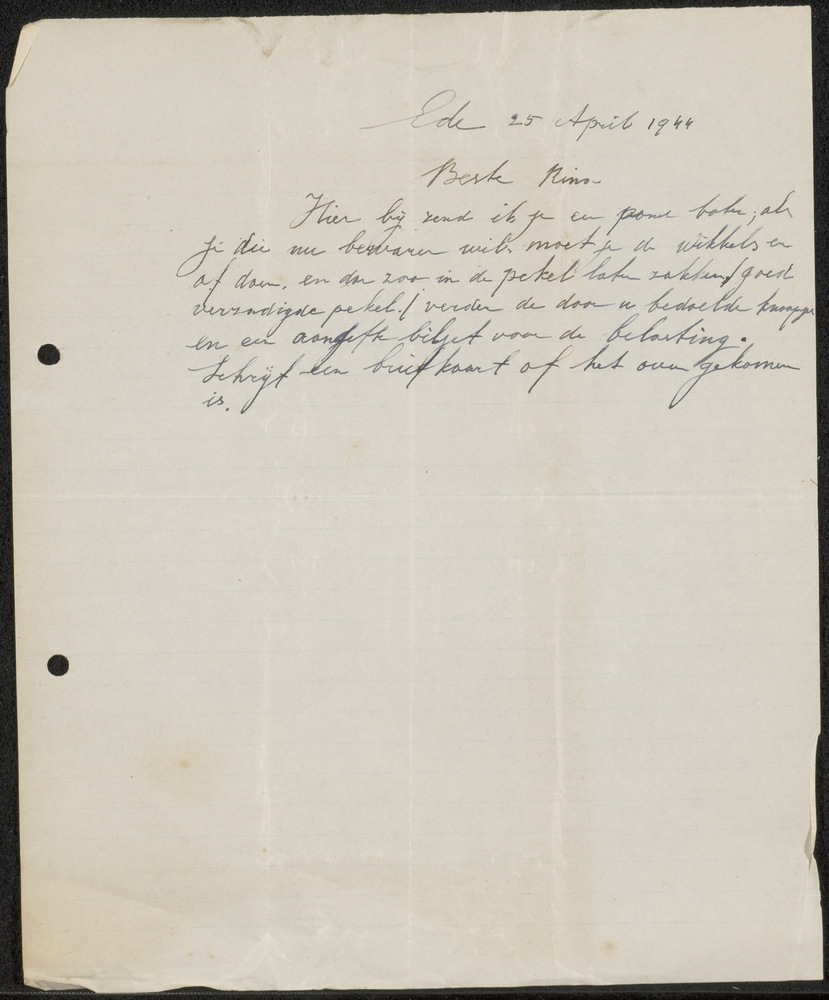 Ede 25 April 1944
Beste Rino
Hier bij zend ik je een pond boter, als
je die nu bewaren wil, moet je de wikkels er
af doen, en dan zoo in de pekel laten zakken, (goed
verzadigde pekel.) verder de door u bedoelde
en een aangifte biljet voor de belasting.
Schrijf een briefkaart of het over gekomen
is.